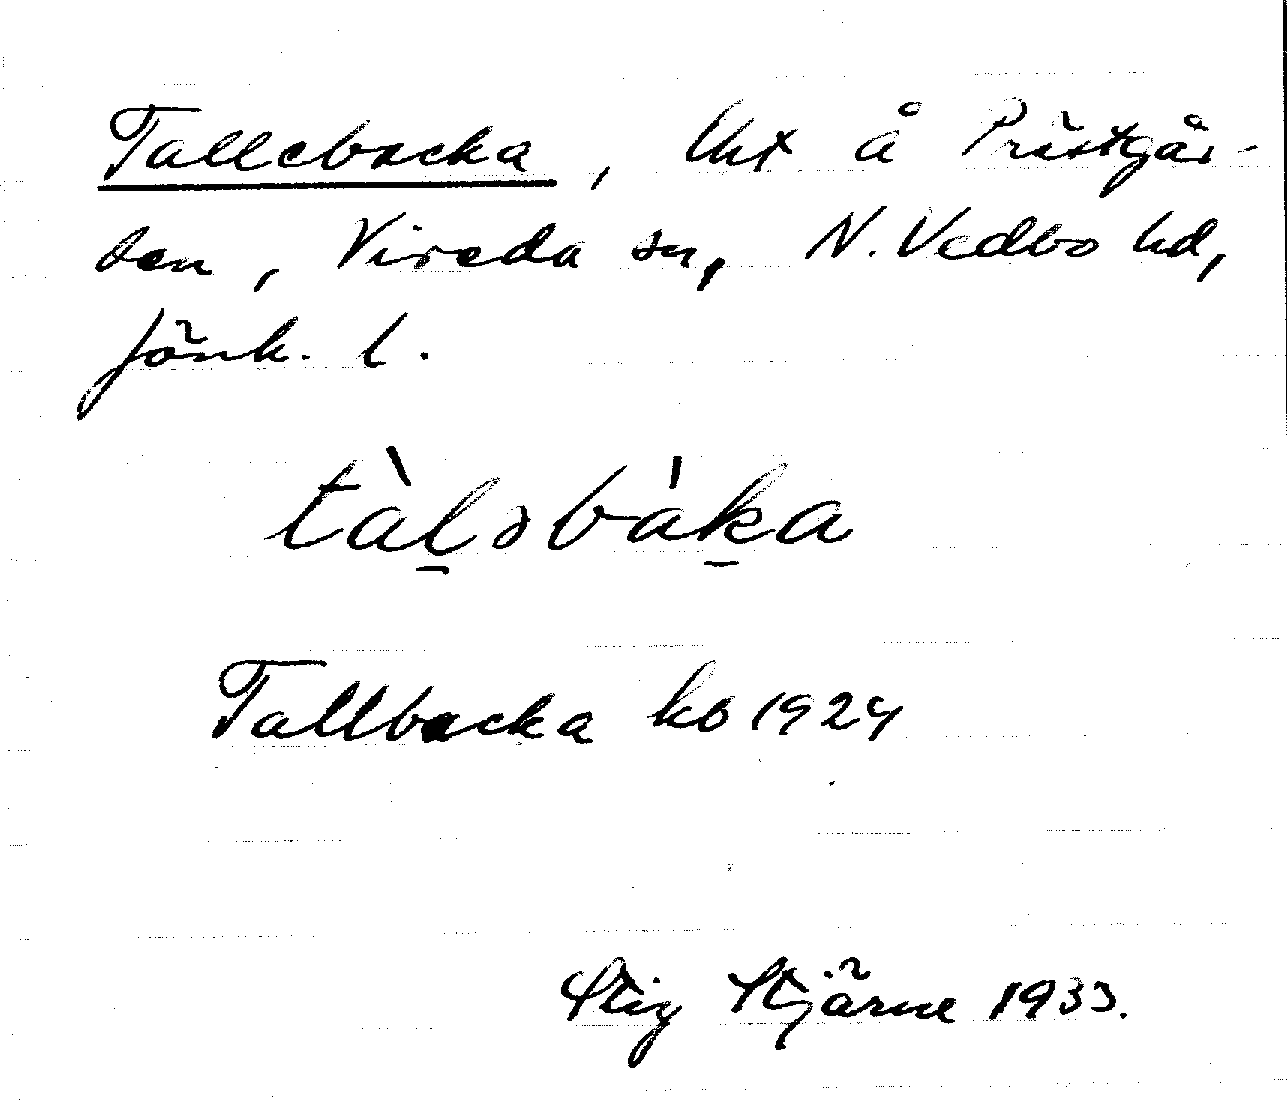 Tallebacka, lht å Prästgår-
den, Vireda sn, N. Vedbo hd,
Jönk. l.
tàl̠əbàk̠a
Tallbacka kb 1924
Stig Stjärne 1933.